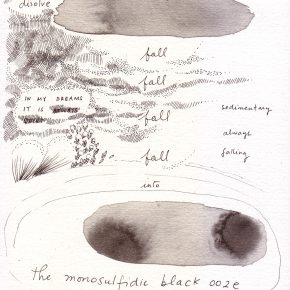 disolve
fall
fall
IN MY DREAMS
IT IS
fall
sedimentary
always
fall
falling
into
the monosulfidic black ooze